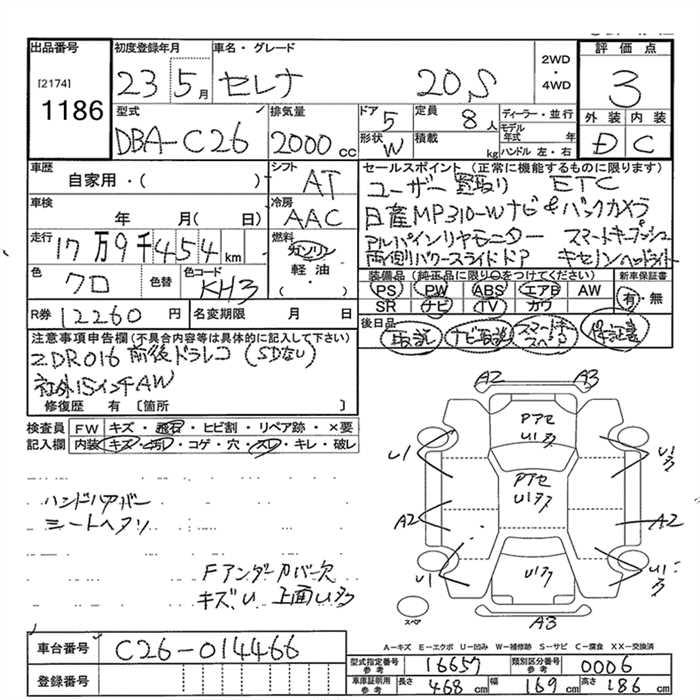 出品番号 初度登録年月 車名・グレード 2WD・4WD 評価点
[2174]
1186
23 5月 セレナ 20S 3
型式 排気量 ドア 定員 ディーラー・並行 外装 内装
DBA-C26 2000cc 5 8人 モデル年式 年
形状 W 積載 kg ハンドル 左・右 D C
車歴 シフト セールスポイント (正常に機能するものに限ります)
自家用・( ) AT
ユーザー買取り ETC
車検 冷房 日産MP310-Wナビ&バックカメラ
年 月( 日) AAC
アルパインリヤモニター スマートキープッシュ
走行 燃料 両側パワースライドドア キセノンヘッドライト
17万9千454km ガソリン 軽油・( )
装備品 (純正品に限り○をつけてください) 新車保証書
色 色替 色コード
クロ KH3
PS PW ABS エアB AW 有・無
SR ナビ TV カワ
R券 12260円 名変期限 月 日
後日品 取説 ナビ取説 スマートキースペア 保証書
注意事項申告欄 (不具合内容等は具体的に記入して下さい)
ZDR016 前後ドラレコ (SDなし)
社外15インチAW
修復歴 有 [箇所 ]
検査員 FW キズ・飛石・ヒビ割・リペア跡・×要
記入欄 内装 キズ・汚レ・コゲ・穴・スレ・キレ・破レ
A2 A3
U1 U1
A2 A2
U1 U1
スペア A3
シートヘタリ
Fアンダーカバー欠
キズ、U 上面U
車台番号 C26-014466
A-キズ E-エクボ U-凹み W-補修跡 S-サビ C-腐食 XX-交換済
型式指定番号 参考 16657 類別区分番号 参考 0006
登録番号
車庫証明用 参考 長さ 468cm 幅 169cm 高さ 186cm